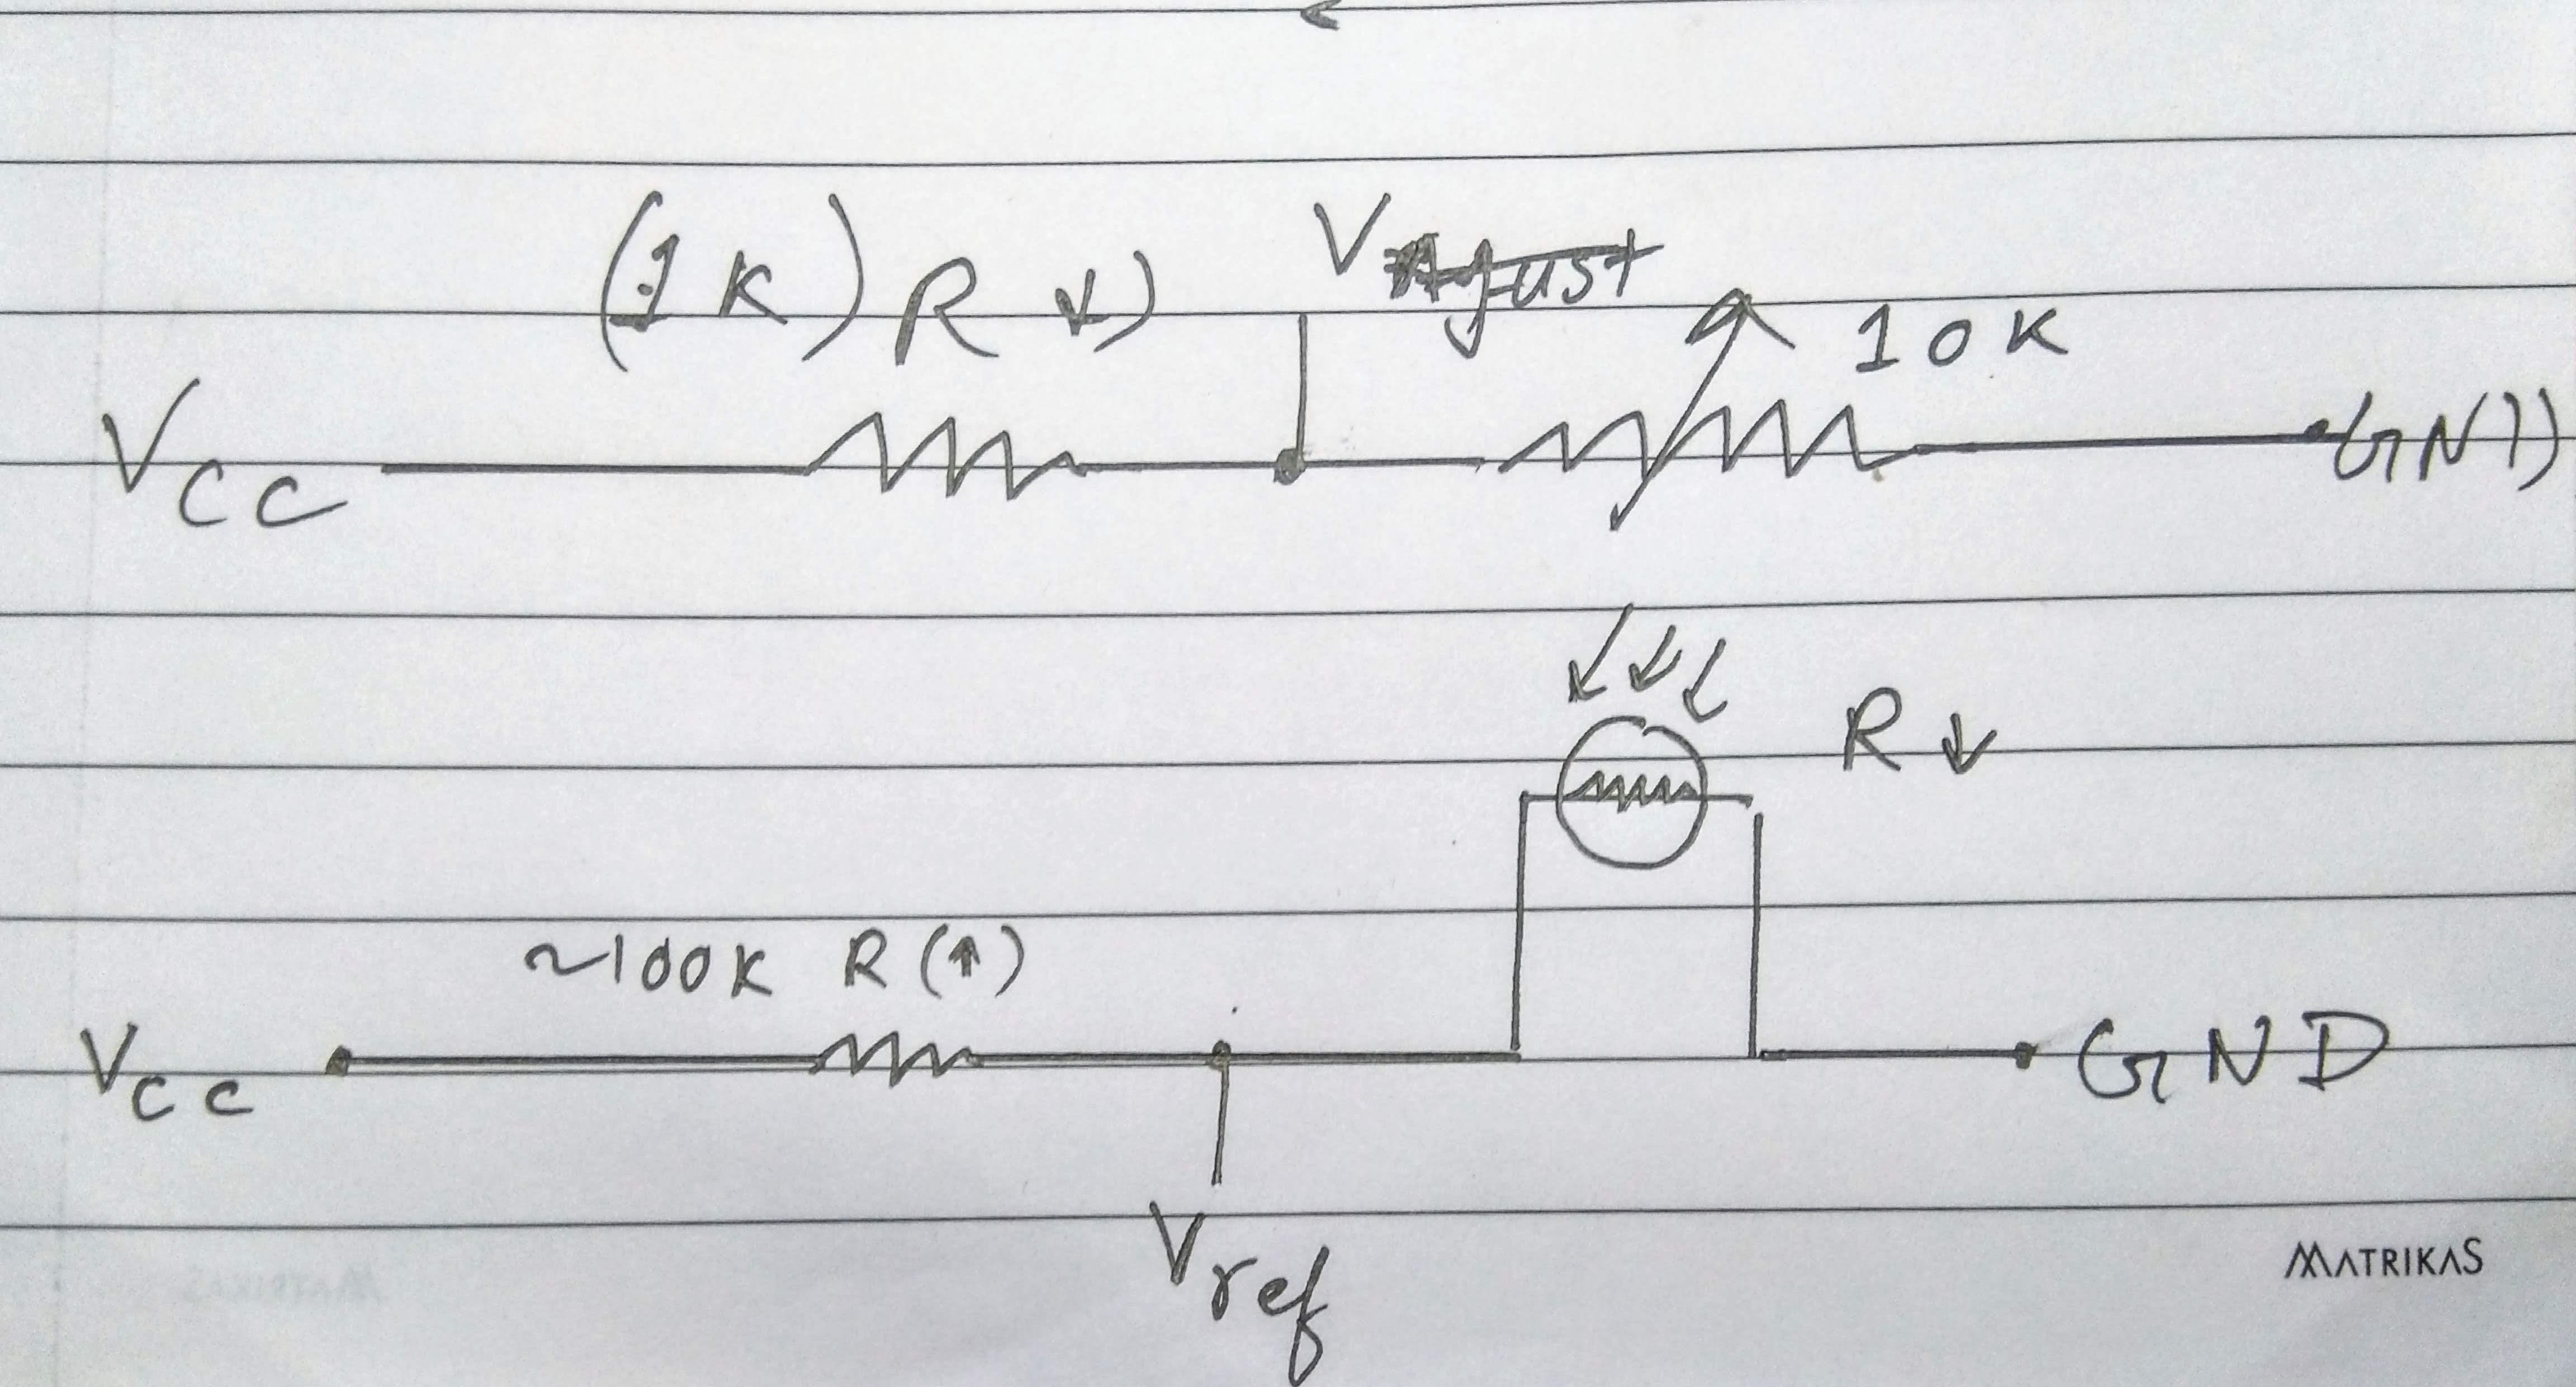 (1K) R ↓)
VAdjust
10K
Vcc
GND
R ↓
~100K R (↑)
Vcc
GND
Vref
MATRIKAS